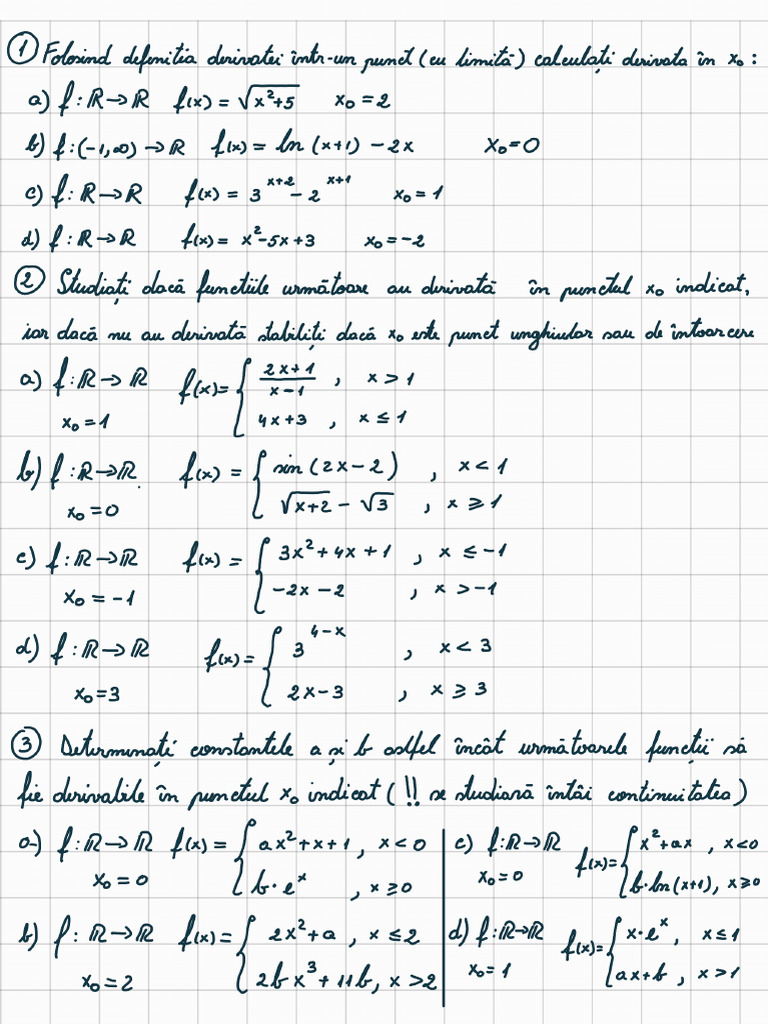 ① Folosind definitia derivatei într-un punct (cu limită) calculați derivata în x₀ :
a) f : ℝ → ℝ f(x) = √(x²+5) x₀ = 2
b) f : (-1, ∞) → ℝ f(x) = ln (x+1) - 2x x₀ = 0
c) f : ℝ → ℝ f(x) = 3^(x+2) - 2^(x+1) x₀ = 1
d) f : ℝ → ℝ f(x) = x²-5x+3 x₀ = -2
② Studiați dacă functiile următoare au derivată în punctul x₀ indicat,
iar dacă nu au derivată stabiliți dacă x₀ este punct unghiular sau de întoarcere
a) f : ℝ → ℝ f(x) = { (2x+1)/(x-1) , x > 1
x₀ = 1 4x+3 , x ≤ 1
b) f : ℝ → ℝ f(x) = { sin (2x-2) , x < 1
x₀ = 0 √(x+2) - √3 , x ≥ 1
c) f : ℝ → ℝ f(x) = { 3x² + 4x + 1 , x ≤ -1
x₀ = -1 -2x - 2 , x > -1
d) f : ℝ → ℝ f(x) = { 3^(4-x) , x < 3
x₀ = 3 2x-3 , x ≥ 3
③ Determinați constantele a și b astfel încât următoarele funcții să
fie derivabile în punctul x₀ indicat ( !! se studiază întâi continuitatea)
a) f : ℝ → ℝ f(x) = { ax² + x + 1 , x < 0
x₀ = 0 b · eˣ , x ≥ 0
b) f : ℝ → ℝ f(x) = { 2x² + a , x ≤ 2
x₀ = 2 2bx³ + 11b, x > 2
c) f : ℝ → ℝ f(x) = { x² + ax , x < 0
x₀ = 0 b·ln(x+1), x ≥ 0
d) f : ℝ → ℝ f(x) = { x · eˣ , x ≤ 1
x₀ = 1 ax+b , x > 1